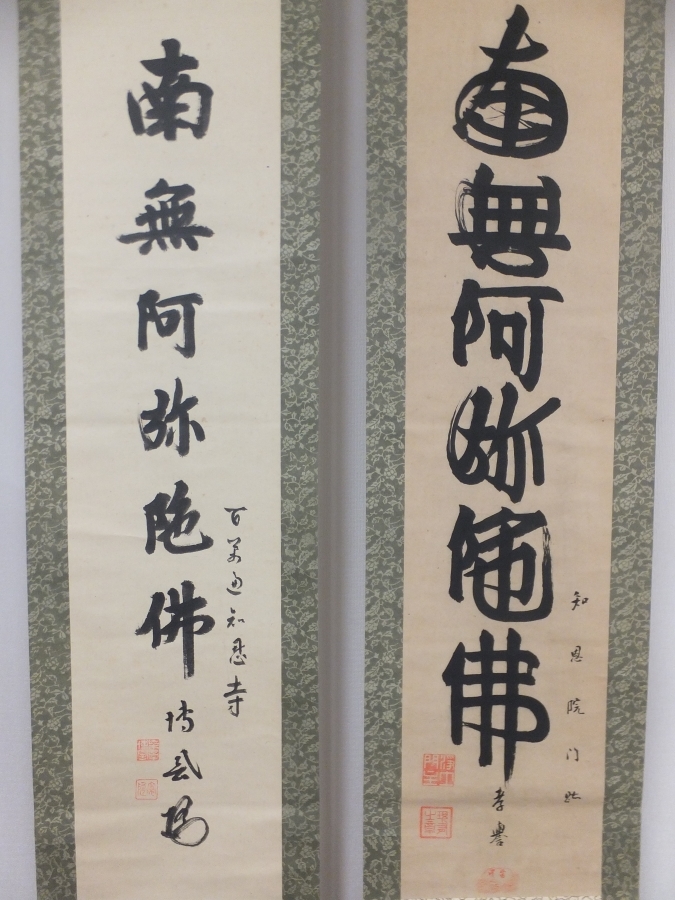 南無阿弥陀佛
知恩院門跡
孝譽
南無阿弥陀佛
百萬遍知恩寺